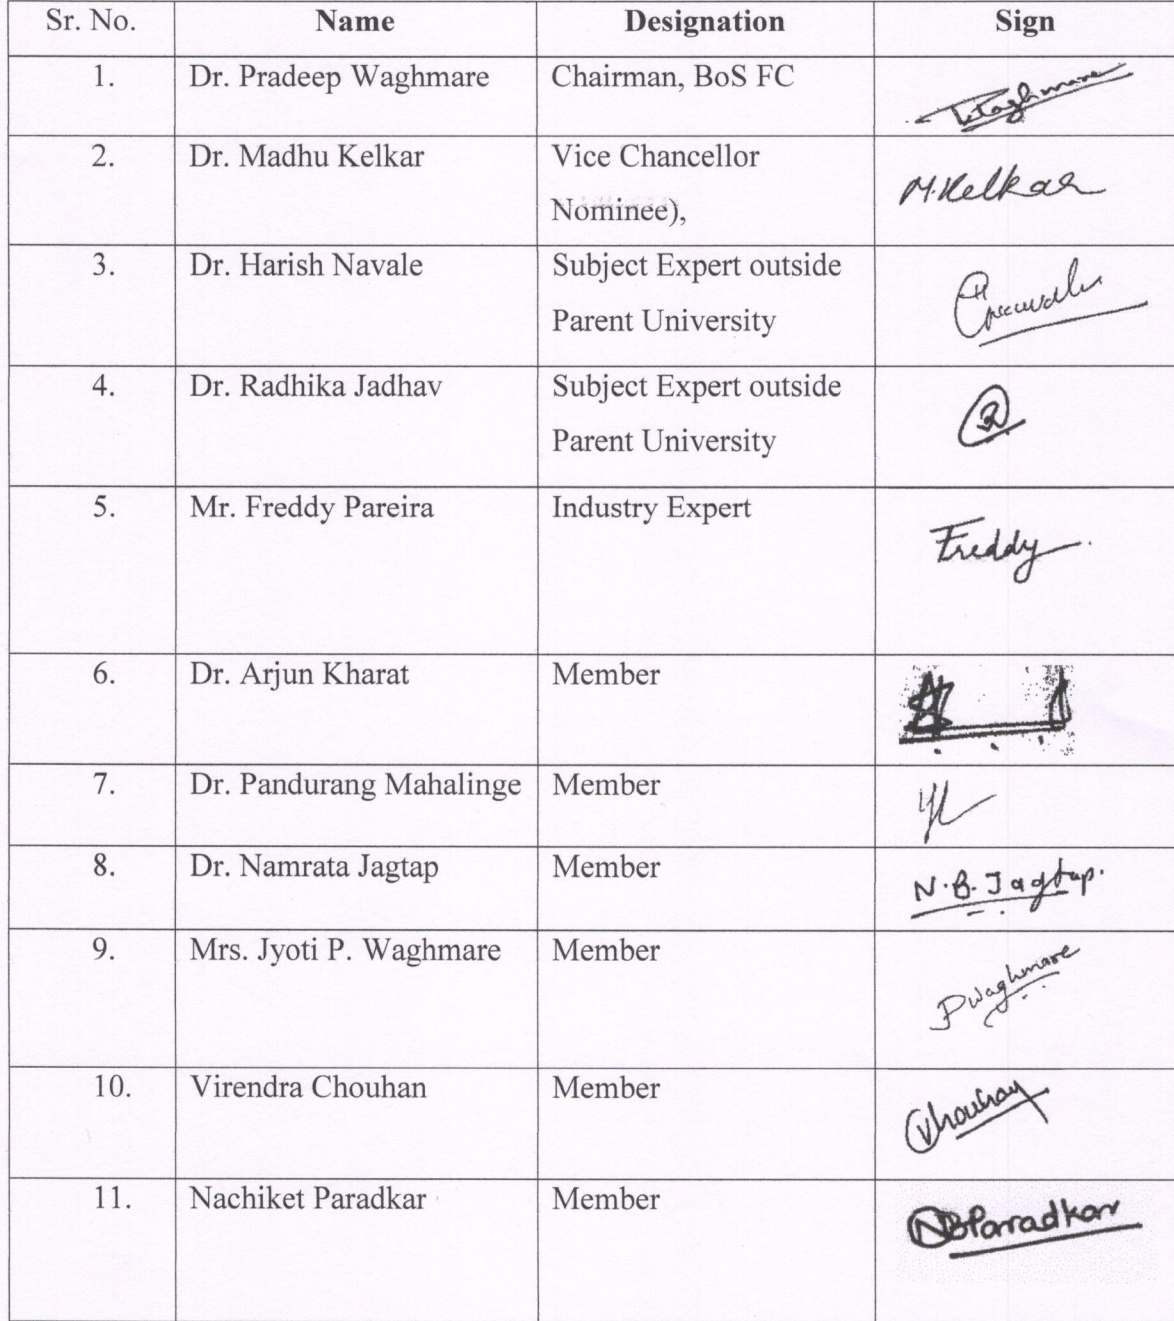 Sr. No. Name Designation Sign
1. Dr. Pradeep Waghmare Chairman, BoS FC Waghmare
2. Dr. Madhu Kelkar Vice Chancellor M.Kelkar
Nominee),
3. Dr. Harish Navale Subject Expert outside
Parent University
4. Dr. Radhika Jadhav Subject Expert outside
Parent University
5. Mr. Freddy Pareira Industry Expert Freddy
6. Dr. Arjun Kharat Member
7. Dr. Pandurang Mahalinge Member
8. Dr. Namrata Jagtap Member N.B.Jagtap.
9. Mrs. Jyoti P. Waghmare Member JPWaghmare
10. Virendra Chouhan Member VChouhan
11. Nachiket Paradkar Member NBParadkar